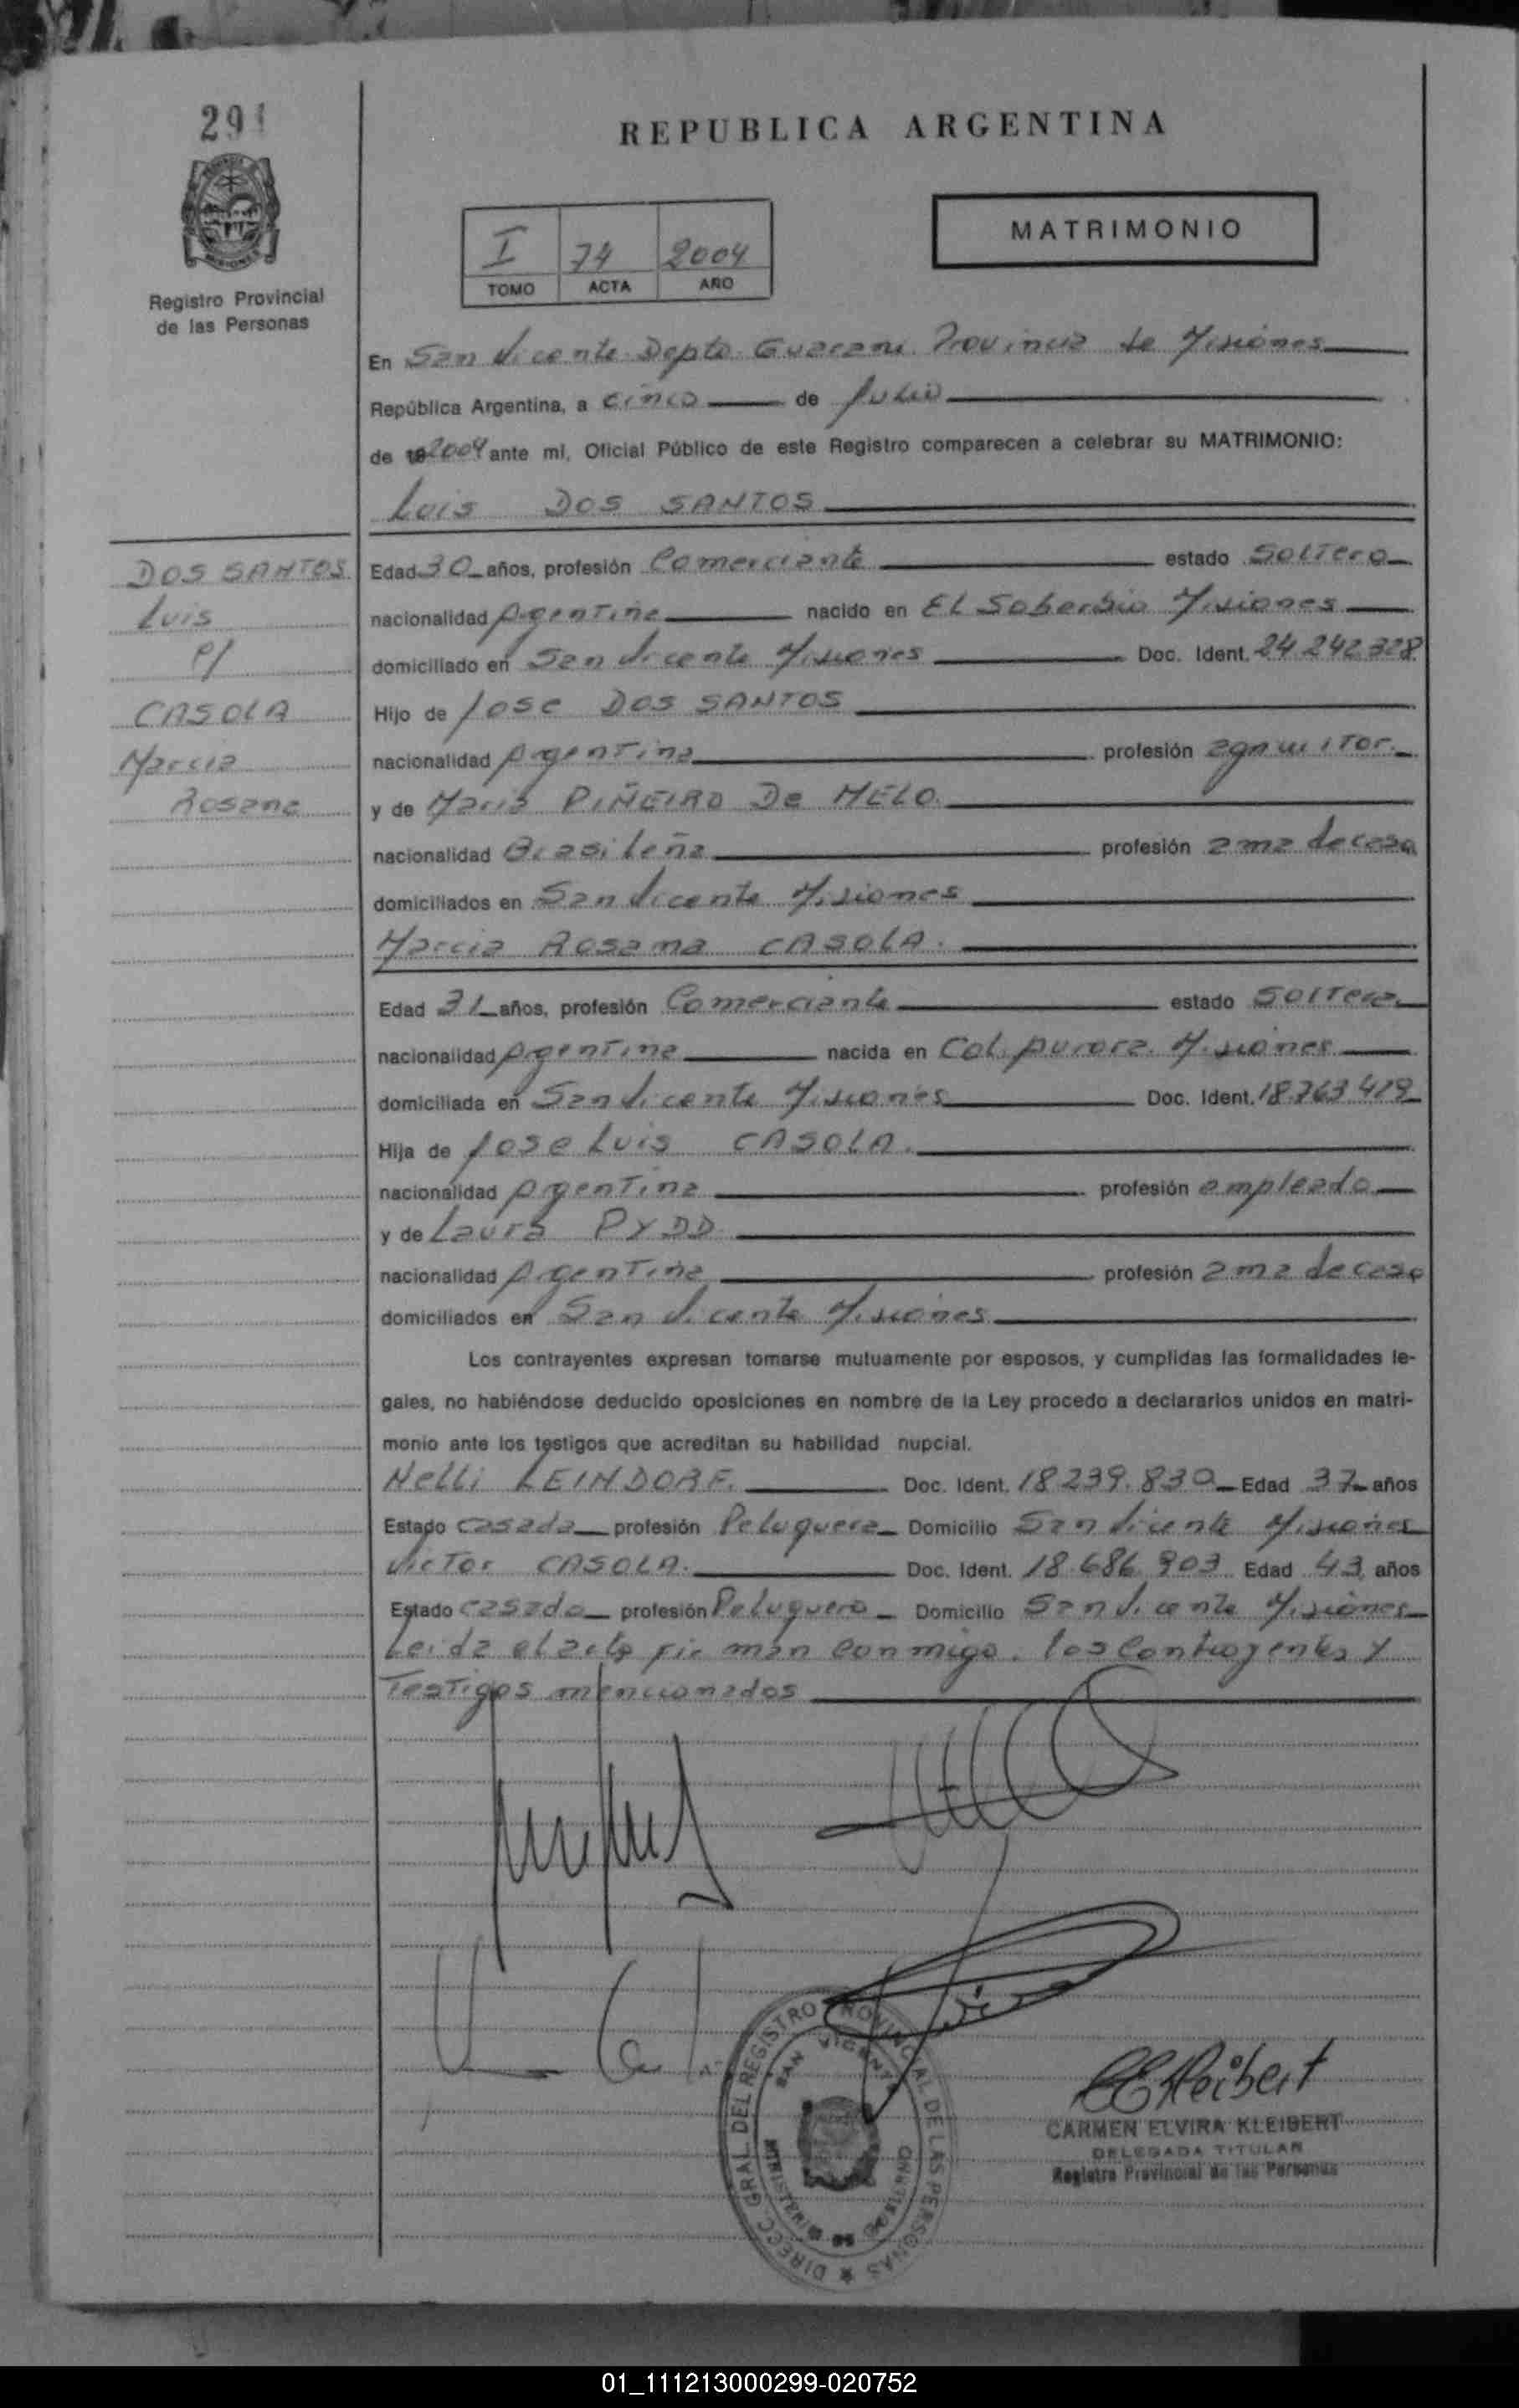 291
REPUBLICA ARGENTINA
MATRIMONIO
I 74 2004
TOMO ACTA AÑO
Registro Provincial
de las Personas
En San Vicente Depto Guarani Provincia de Misiones
República Argentina, a cinco de Julio
de 2004 ante mi, Oficial Público de este Registro comparecen a celebrar su MATRIMONIO:
Luis DOS SANTOS
DOS SANTOS
Luis
c/
CASOLA
Marcia
Rosana
Edad 30 años, profesión Comerciante estado Soltero
nacionalidad Argentina nacido en El Soberbio Misiones
domiciliado en San Vicente Misiones Doc. Ident. 24.242.328
Hijo de Jose DOS SANTOS
nacionalidad Argentina profesión agricultor
y de Maria PIÑEIRO De MELO
nacionalidad Brasileña profesión ama de casa
domiciliados en San Vicente Misiones
Marcia Rosana CASOLA.
Edad 31 años, profesión Comerciante estado Soltera
nacionalidad Argentina nacida en Col. Aurora Misiones
domiciliada en San Vicente Misiones Doc. Ident. 18.763.419
Hija de Jose Luis CASOLA.
nacionalidad Argentina profesión empleado
y de Laura PYDD
nacionalidad Argentina profesión ama de casa
domiciliados en San Vicente Misiones
Los contrayentes expresan tomarse mutuamente por esposos, y cumplidas las formalidades le-
gales, no habiéndose deducido oposiciones en nombre de la Ley procedo a declararlos unidos en matri-
monio ante los testigos que acreditan su habilidad nupcial.
Nelli LEINDORF. Doc. Ident. 18.239.830 Edad 37 años
Estado casada profesión Peluquera Domicilio San Vicente Misiones
Victor CASOLA. Doc. Ident. 18.686.903 Edad 43 años
Estado casado profesión Peluquero Domicilio San Vicente Misiones
Leida el acta firman conmigo. los contrayentes y
Testigos mencionados
DIRECC. GRAL. DEL REGISTRO PROVINCIAL DE LAS PERSONAS
SAN VICENTE
MINISTERIO DE GOBIERNO
CEKleibert
CARMEN ELVIRA KLEIBERT
DELEGADA TITULAR
Registro Provincial de las Personas
01_111213000299-020752